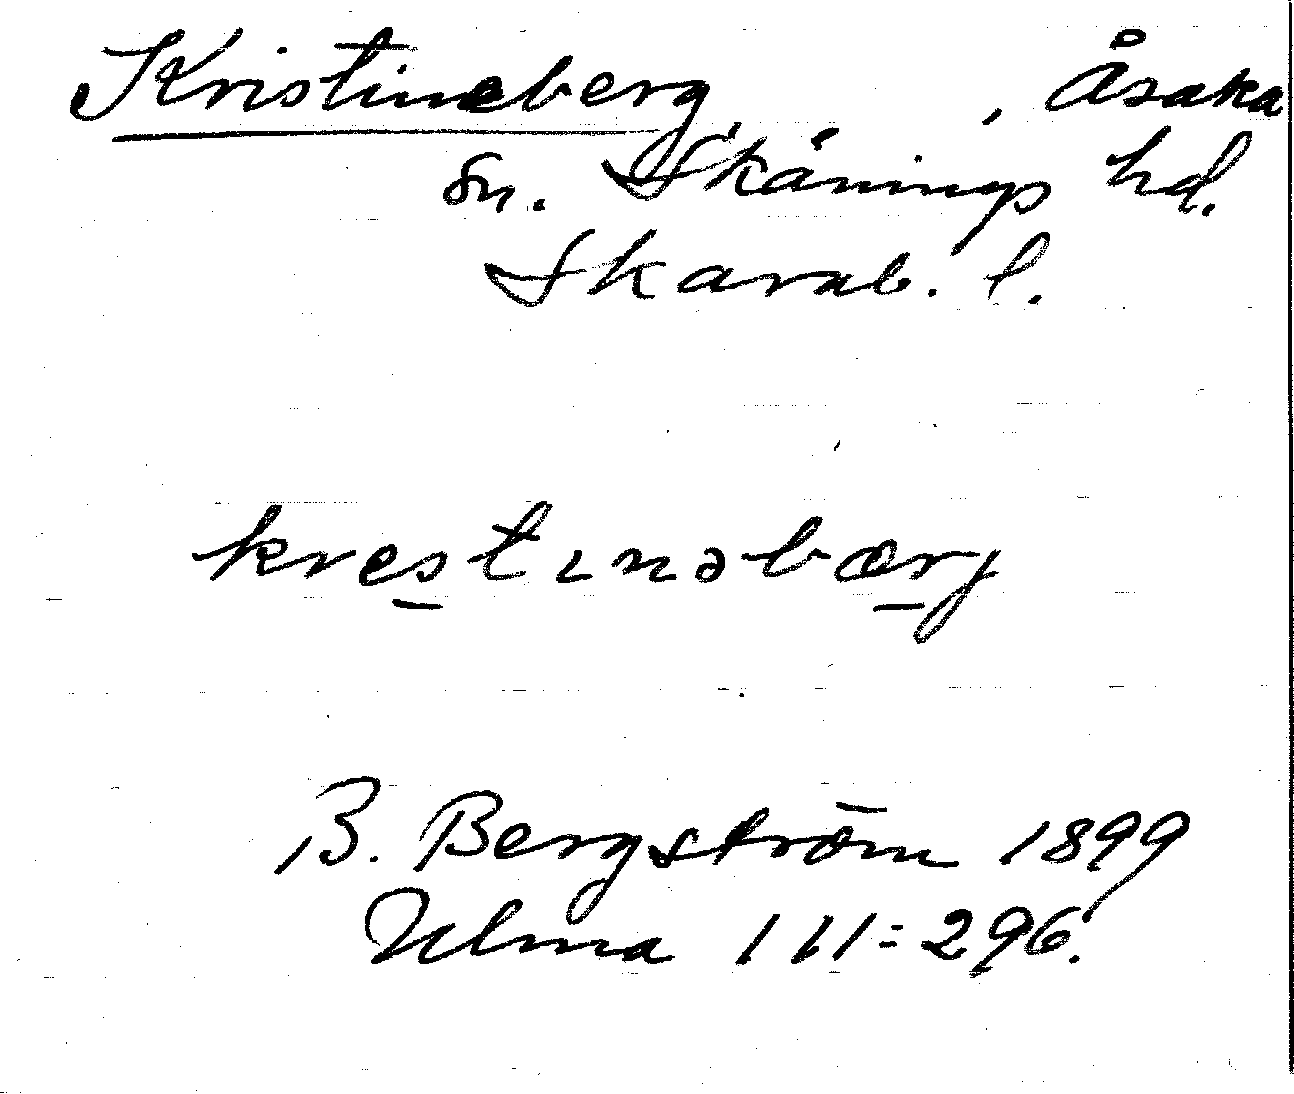 Kristineberg, Åsaka
sn. Skånings hd.
Skarab. l.
krestınəbærj
B. Bergström 1899
Ulma 111:296.